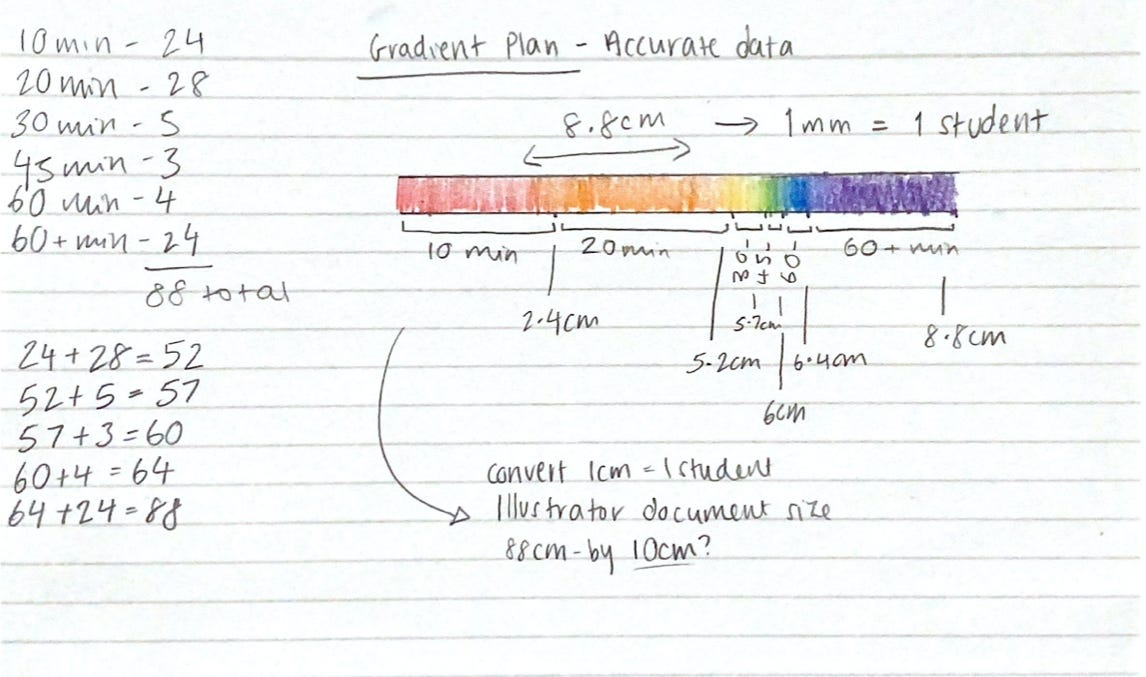 10min - 24
20min - 28
30min - 5
45min - 3
60 min - 4
60+ min - 24
88 total
24 + 28 = 52
52 + 5 = 57
57 + 3 = 60
60 + 4 = 64
64 + 24 = 88
Gradient Plan - Accurate data
8.8cm → 1mm = 1 student
10 min
20min
30
45
60
60 + min
2.4cm
5.2cm
5.7cm
6cm
6.4cm
8.8cm
convert 1cm = 1 student
Illustrator document size
88cm - by 10cm?